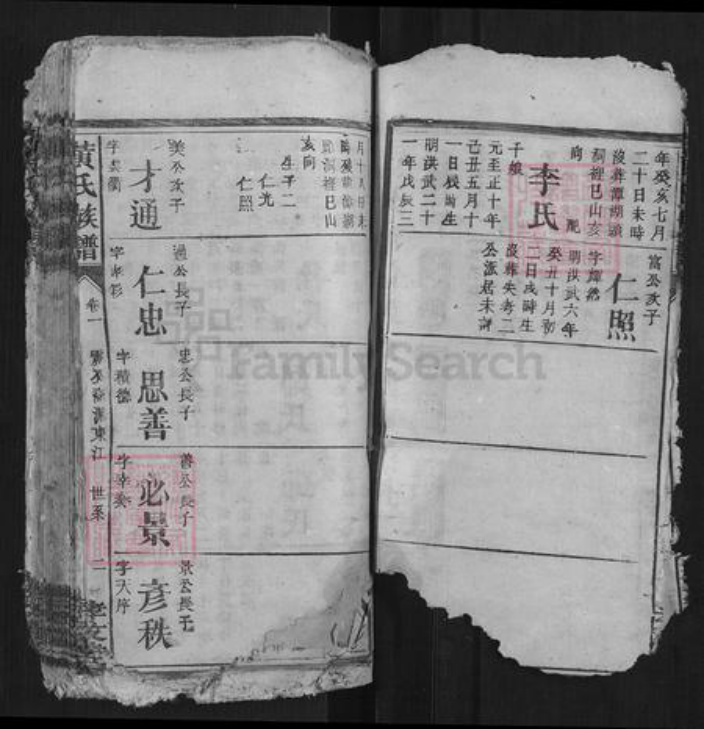 年癸亥七月
二十日未時
沒葬潭湖頭
洞裡巳山亥
向
配
李氏
千娘
元至正十年
己丑五月十
一日辰時生
明洪武二十
一年戊辰三
富公次子
仁照
字輝然
明洪武六年
癸丑十月初
二日戌時生
沒葬失考二
公派居未詳
月十
洞裡巳山
亥向
生子二
仁光
仁照
美公次子
才通
字
通公長子
仁忠
字孝彩
忠公長子
思善
字積德
善公長子
必景
字幸癸
景公長子
彦秩
字天序
黃氏族譜
卷一
世系
二
FamilySearch